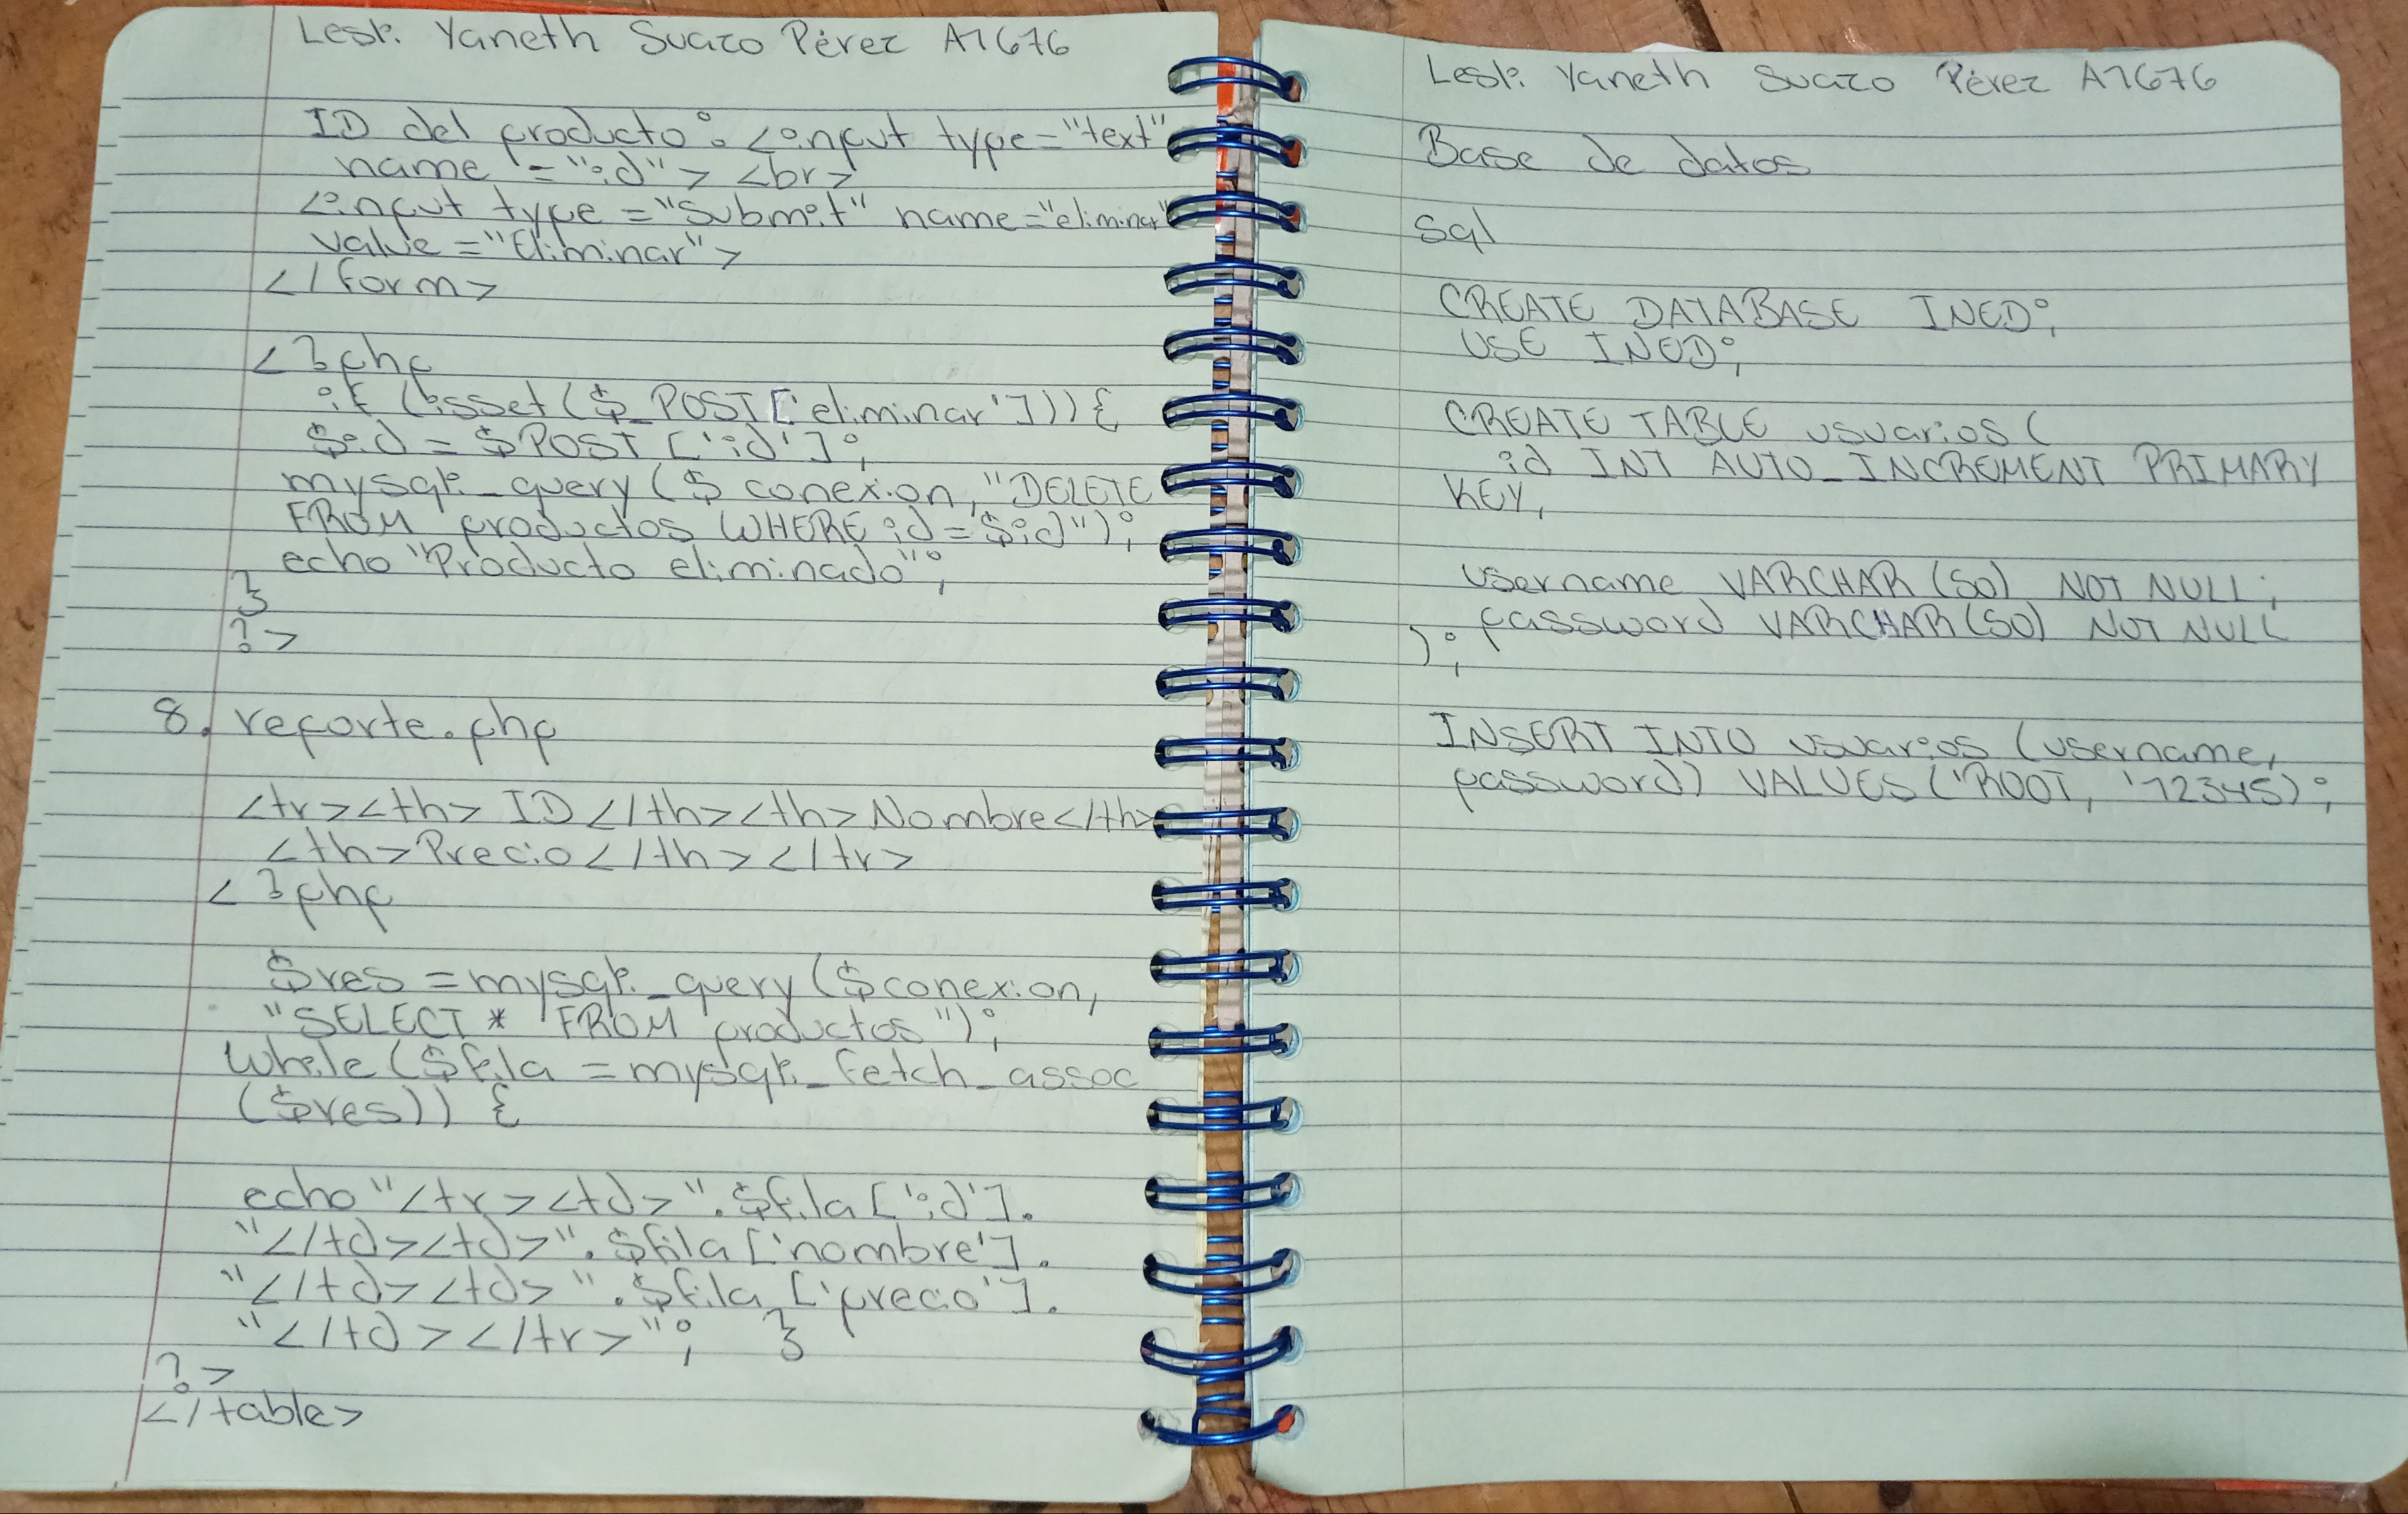 Lesli Yaneth Suazo Pérez A1676
ID del producto: <input type="text"
name = "id"> <br>
<input type = "Submit" name="eliminar"
value = "Eliminar">
</form>
<?php
if (isset($_POST['eliminar'])){
$id = $POST ['id'];
mysqli_query ($ conexion, "DELETE
FROM productos WHERE id=$id");
echo "Producto eliminado";
}
?>
8. reporte.php
<tr><th> ID </th><th>Nombre</th>
<th>Precio</th></tr>
<?php
$res = mysqli_query ($conexion,
"SELECT * FROM productos");
While ($fila = mysqli_fetch_assoc
($res)) {
echo "<tr><td>".$fila ['id'].
"</td><td>".$fila ['nombre'].
"</td><td>".$fila ['precio'].
"</td></tr>"; }
?>
</table>
Lesli Yaneth Suazo Pérez A1676
Base de datos
Sql
CREATE DATABASE INED;
USE INED;
CREATE TABLE usuarios (
id INT AUTO_INCREMENT PRIMARY
KEY,
username VARCHAR (50) NOT NULL,
password VARCHAR (50) NOT NULL
);
INSERT INTO usuarios (username,
password) VALUES ('ROOT, '12345);